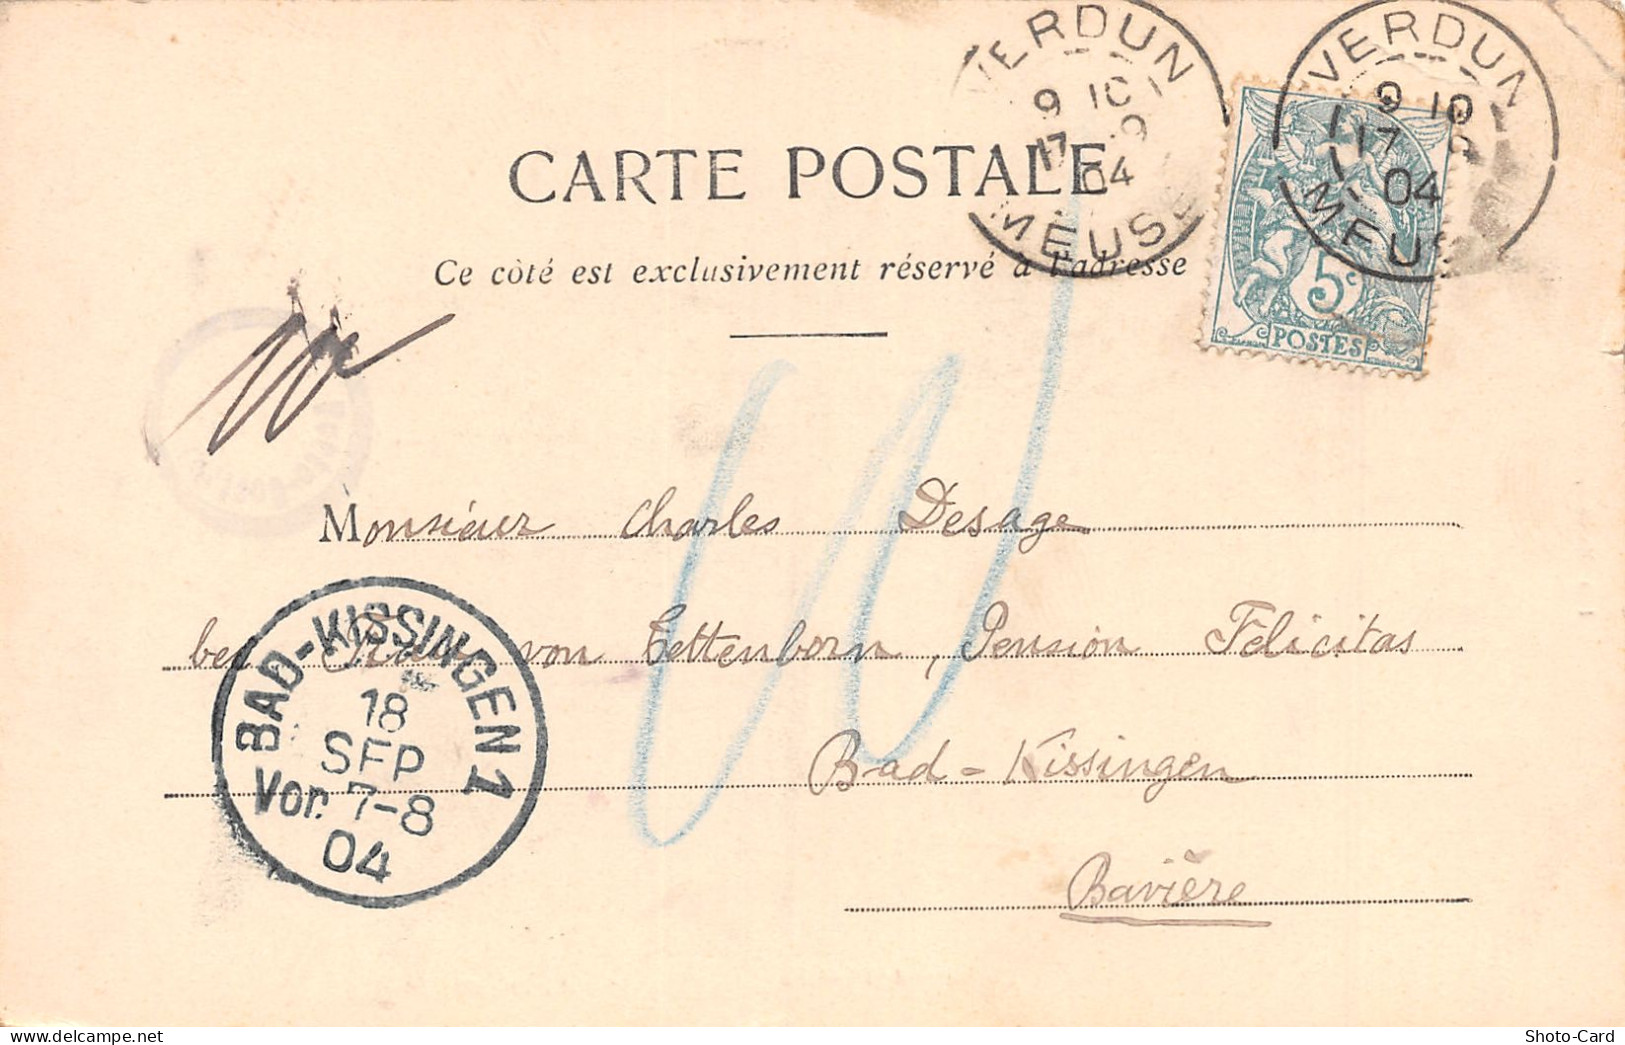 VERDUN
9 10
17 9
04
MEUSE
VERDUN
9 10
17 9
04
MEUSE
5c
POSTES
CARTE POSTALE
Ce côté est exclusivement réservé à l'adresse
10
Monsieur Charles Desage
bei Frau von Tettenborn, Pension Félicitas
Bad-Kissingen
Bavière
BAD-KISSINGEN 1
18
SEP
Vor. 7-8
04
Shoto-Card